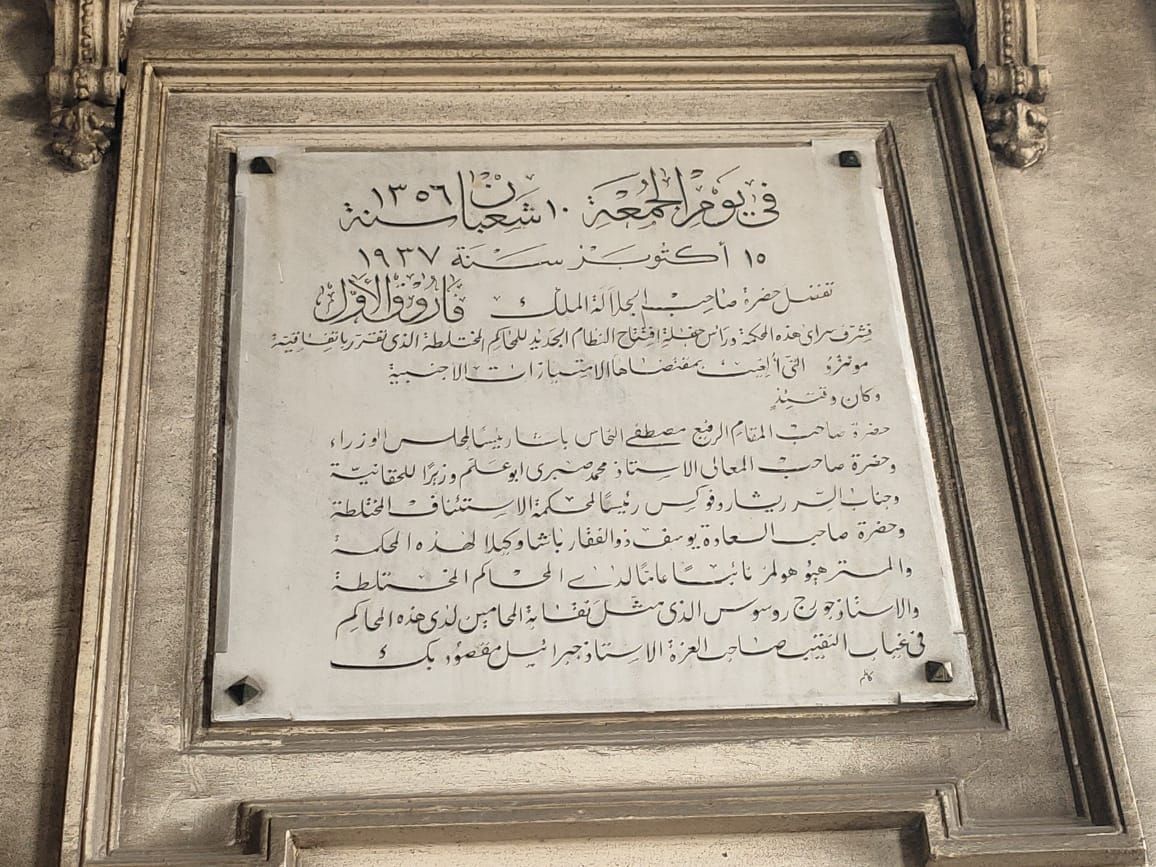 في يوم الجمعة ١٠ شعبان سنة ١٣٥٦
١٥ أكتوبر سنة ١٩٣٧
تفضل حضرة صاحب الجلالة الملك فاروق الأول
فشرف سراي هذه المحكمة ورأس حفلة افتتاح النظام الجديد للمحاكم المختلطة الذي تقرر باتفاقية
مونترو التي ألغيت بمقتضاها الامتيازات الاجنبية
وكان وقتئذ
حضرة صاحب المقام الرفيع مصطفى النحاس باشا رئيسا لمجلس الوزراء
وحضرة صاحب المعالي الاستاذ محمد صبري ابو علم وزيرًا للحقانية
وجناب السر ريشارد فوكس رئيسًا لمحكمة الاستئناف المختلطة
وحضرة صاحب السعادة يوسف ذو الفقار باشا وكيلا لهذه المحكمة
والمستر هيو هولمز نائبًا عامًا لدى المحاكم المختلطة
والاستاذ جورج روسوس الذي مثل نقابة المحامين لدى هذه المحاكم
في غياب النقيب صاحب العزة الاستاذ جبرائيل مقصود بك